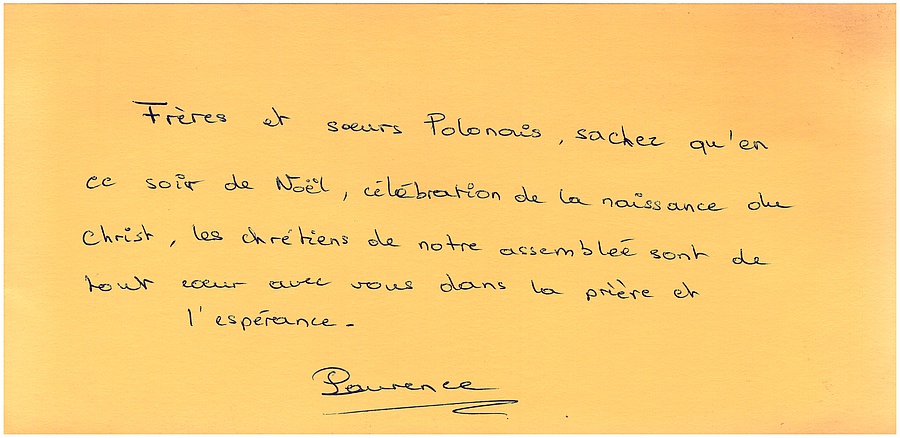 Frères et sœurs Polonais, sachez qu'en
ce soir de Noël, célébration de la naissance du
Christ, les chrétiens de notre assembleé sont de
tout cœur avec vous dans la prière et
l'espérance.
Laurence